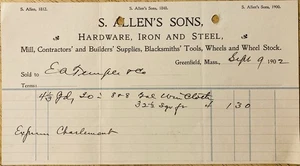 S. Allen, 1812. S. Allen's Sons, 1855. S. Allen's Sons, 1900.
S. ALLEN'S SONS,
HARDWARE, IRON AND STEEL,
Mill, Contractors' and Builders' Supplies, Blacksmiths' Tools, Wheels and Wheel Stock.
Greenfield, Mass., Sept 9 1902
Sold to E A Temple & Co
Terms:
20 in 8x8 Gal Wire Cloth
4 1 30
Express Charlemont